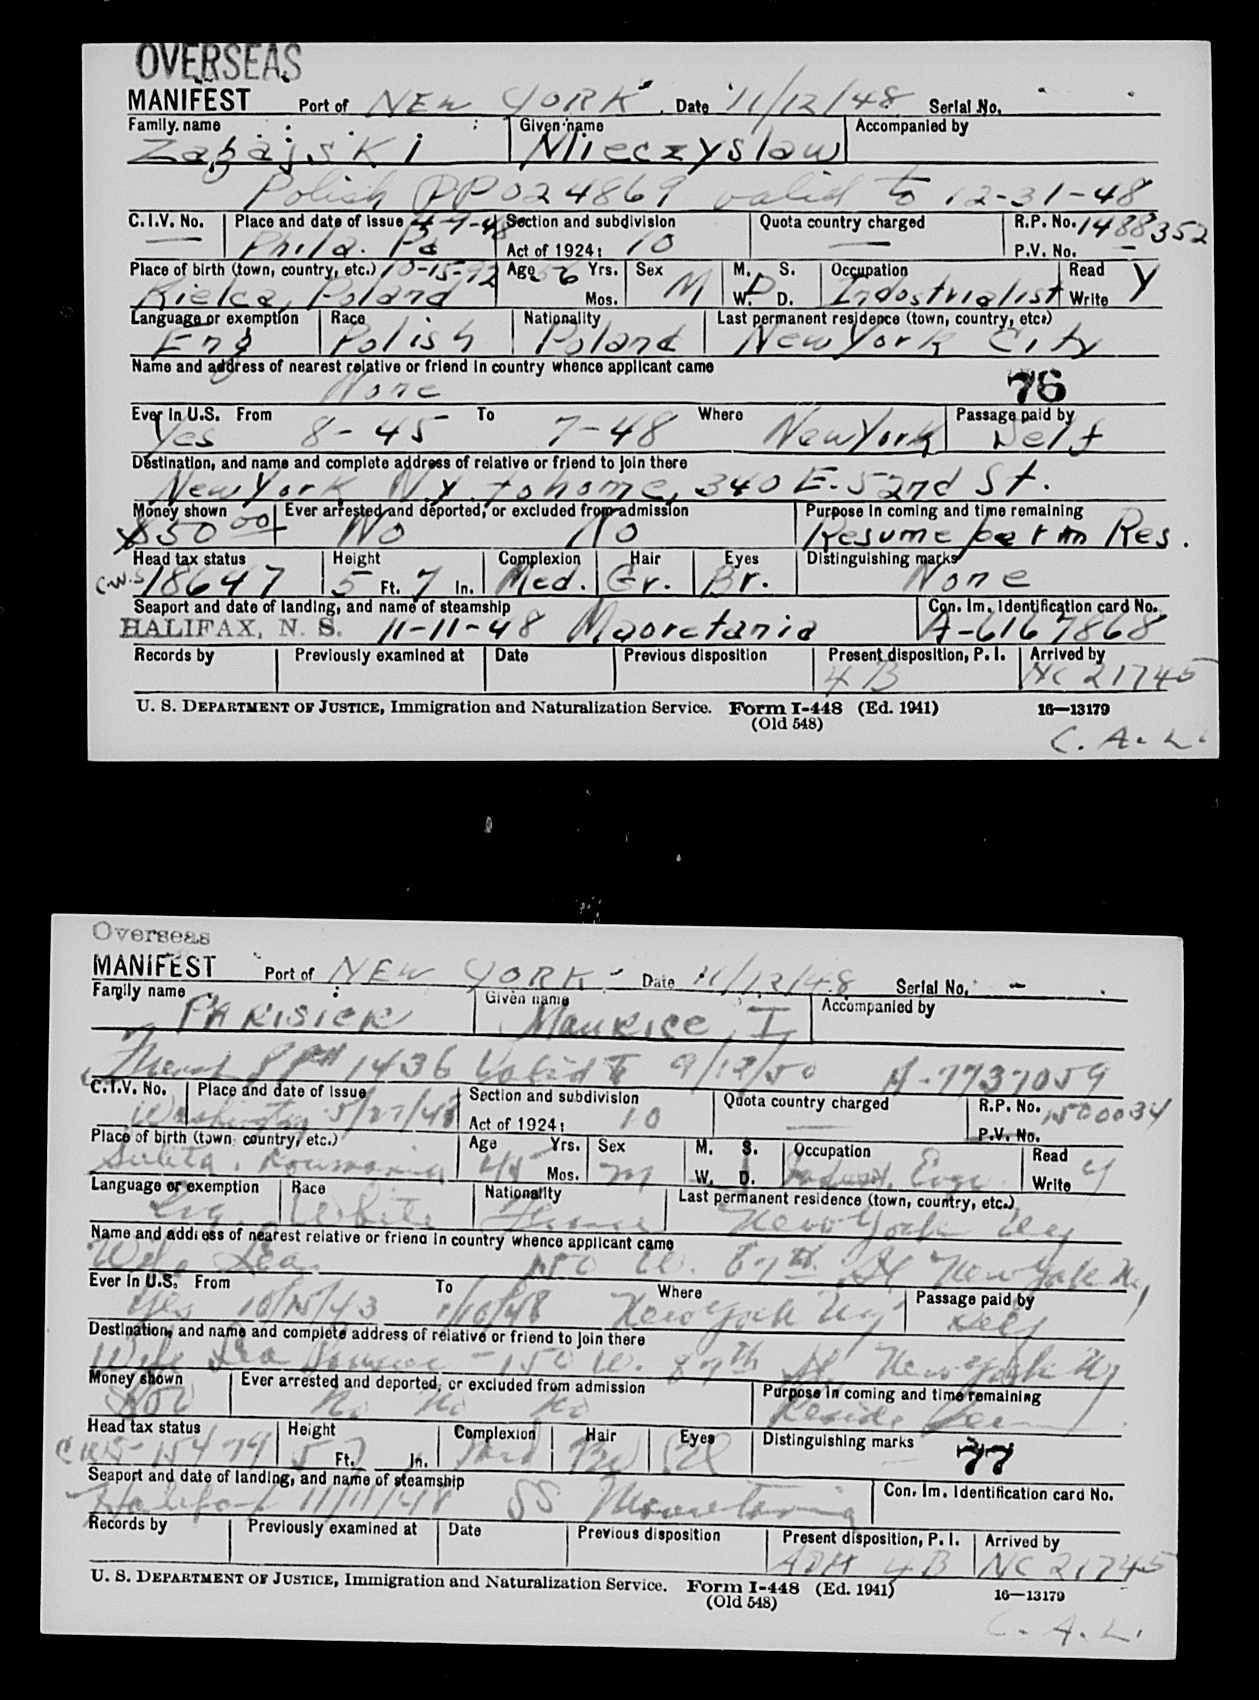 OVERSEAS
MANIFEST Port of NEW YORK Date 11/12/48 Serial No.
Family name Given name Accompanied by
Zabajski Mieczyslaw
Polish PP 024869 valid to 12-31-48
C.I.V. No. Place and date of issue 4-9-48 Section and subdivision Quota country charged R.P. No. 1488352
— Phila. Pa Act of 1924: 10 — P.V. No. —
Place of birth (town, country, etc.) 10-15-92 Age 56 Yrs. Sex M. S. Occupation Read Y
Kielce, Poland Mos. M W. D. Industrialist Write
Language or exemption Race Nationality Last permanent residence (town, country, etc.)
Eng Polish Poland New York City
Name and address of nearest relative or friend in country whence applicant came
None 76
Ever in U.S. From To Where Passage paid by
Yes 8-45 7-48 New York Self
Destination, and name and complete address of relative or friend to join there
New York N.Y. to home, 340 E. 52nd St.
Money shown Ever arrested and deported, or excluded from admission Purpose in coming and time remaining
$50 00 No No Resume perm Res.
Head tax status Height Complexion Hair Eyes Distinguishing marks
C.W.S 18647 5 Ft. 7 In. Med. Gr. Br. None
Seaport and date of landing, and name of steamship Con. Im. Identification card No.
HALIFAX, N. S. 11-11-48 Maoretania A-6167868
Records by Previously examined at Date Previous disposition Present disposition, P. I. Arrived by
4B NC 21745
U. S. DEPARTMENT OF JUSTICE, Immigration and Naturalization Service. Form I-448 (Ed. 1941) 16—13179
(Old 548)
C. A. L.
Overseas
MANIFEST Port of NEW YORK Date 11/12/48 Serial No. -
Family name Given name Accompanied by
PARISIER Maurice I
PP# 1436 Valid to 9/12/50 A-7737059
C.I.V. No. Place and date of issue Section and subdivision Quota country charged R.P. No. 1500034
Washington 5/27/48 Act of 1924: 10 — P.V. No.
Place of birth (town, country, etc.) Age Yrs. Sex M. S. Occupation Read
Sulita, Roumania 45 Mos. M W. D. Write y
Language or exemption Race Nationality Last permanent residence (town, country, etc.)
Eng White New York Ny
Name and address of nearest relative or friend in country whence applicant came
Wife 150 W. 87th St New York Ny
Ever in U.S. From To Where Passage paid by
Yes 10/15/43 1/10/48 New York Ny Self
Destination, and name and complete address of relative or friend to join there
Wife - 150 W. 87th St. New York Ny
Money shown Ever arrested and deported, or excluded from admission Purpose in coming and time remaining
$50 No No No Reside Perm
Head tax status Height Complexion Hair Eyes Distinguishing marks
CWS-15479 5 Ft. 7 In. Med 77
Seaport and date of landing, and name of steamship Con. Im. Identification card No.
Halifax 11/11/48 SS Mauretania
Records by Previously examined at Date Previous disposition Present disposition, P. I. Arrived by
ADM 4B NC 21745
U. S. DEPARTMENT OF JUSTICE, Immigration and Naturalization Service. Form I-448 (Ed. 1941) 16—13179
(Old 548)
C. A. L.